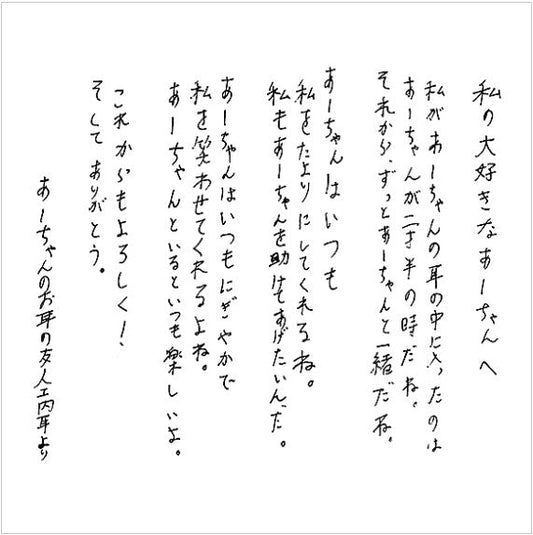 私の大好きなあーちゃんへ
私があーちゃんの耳の中に入ったのは
あーちゃんが二才半の時だね。
それから、ずっとあーちゃんと一緒だね。
あーちゃんはいつも
私をたよりにしてくれるね。
私もあーちゃんを助けてあげたいんだ。
あーちゃんはいつもにぎやかで
私を笑わせてくれるよね。
あーちゃんといるといつも楽しいよ。
これからもよろしく！
そして ありがとう。
あーちゃんのお耳の友人工内耳より